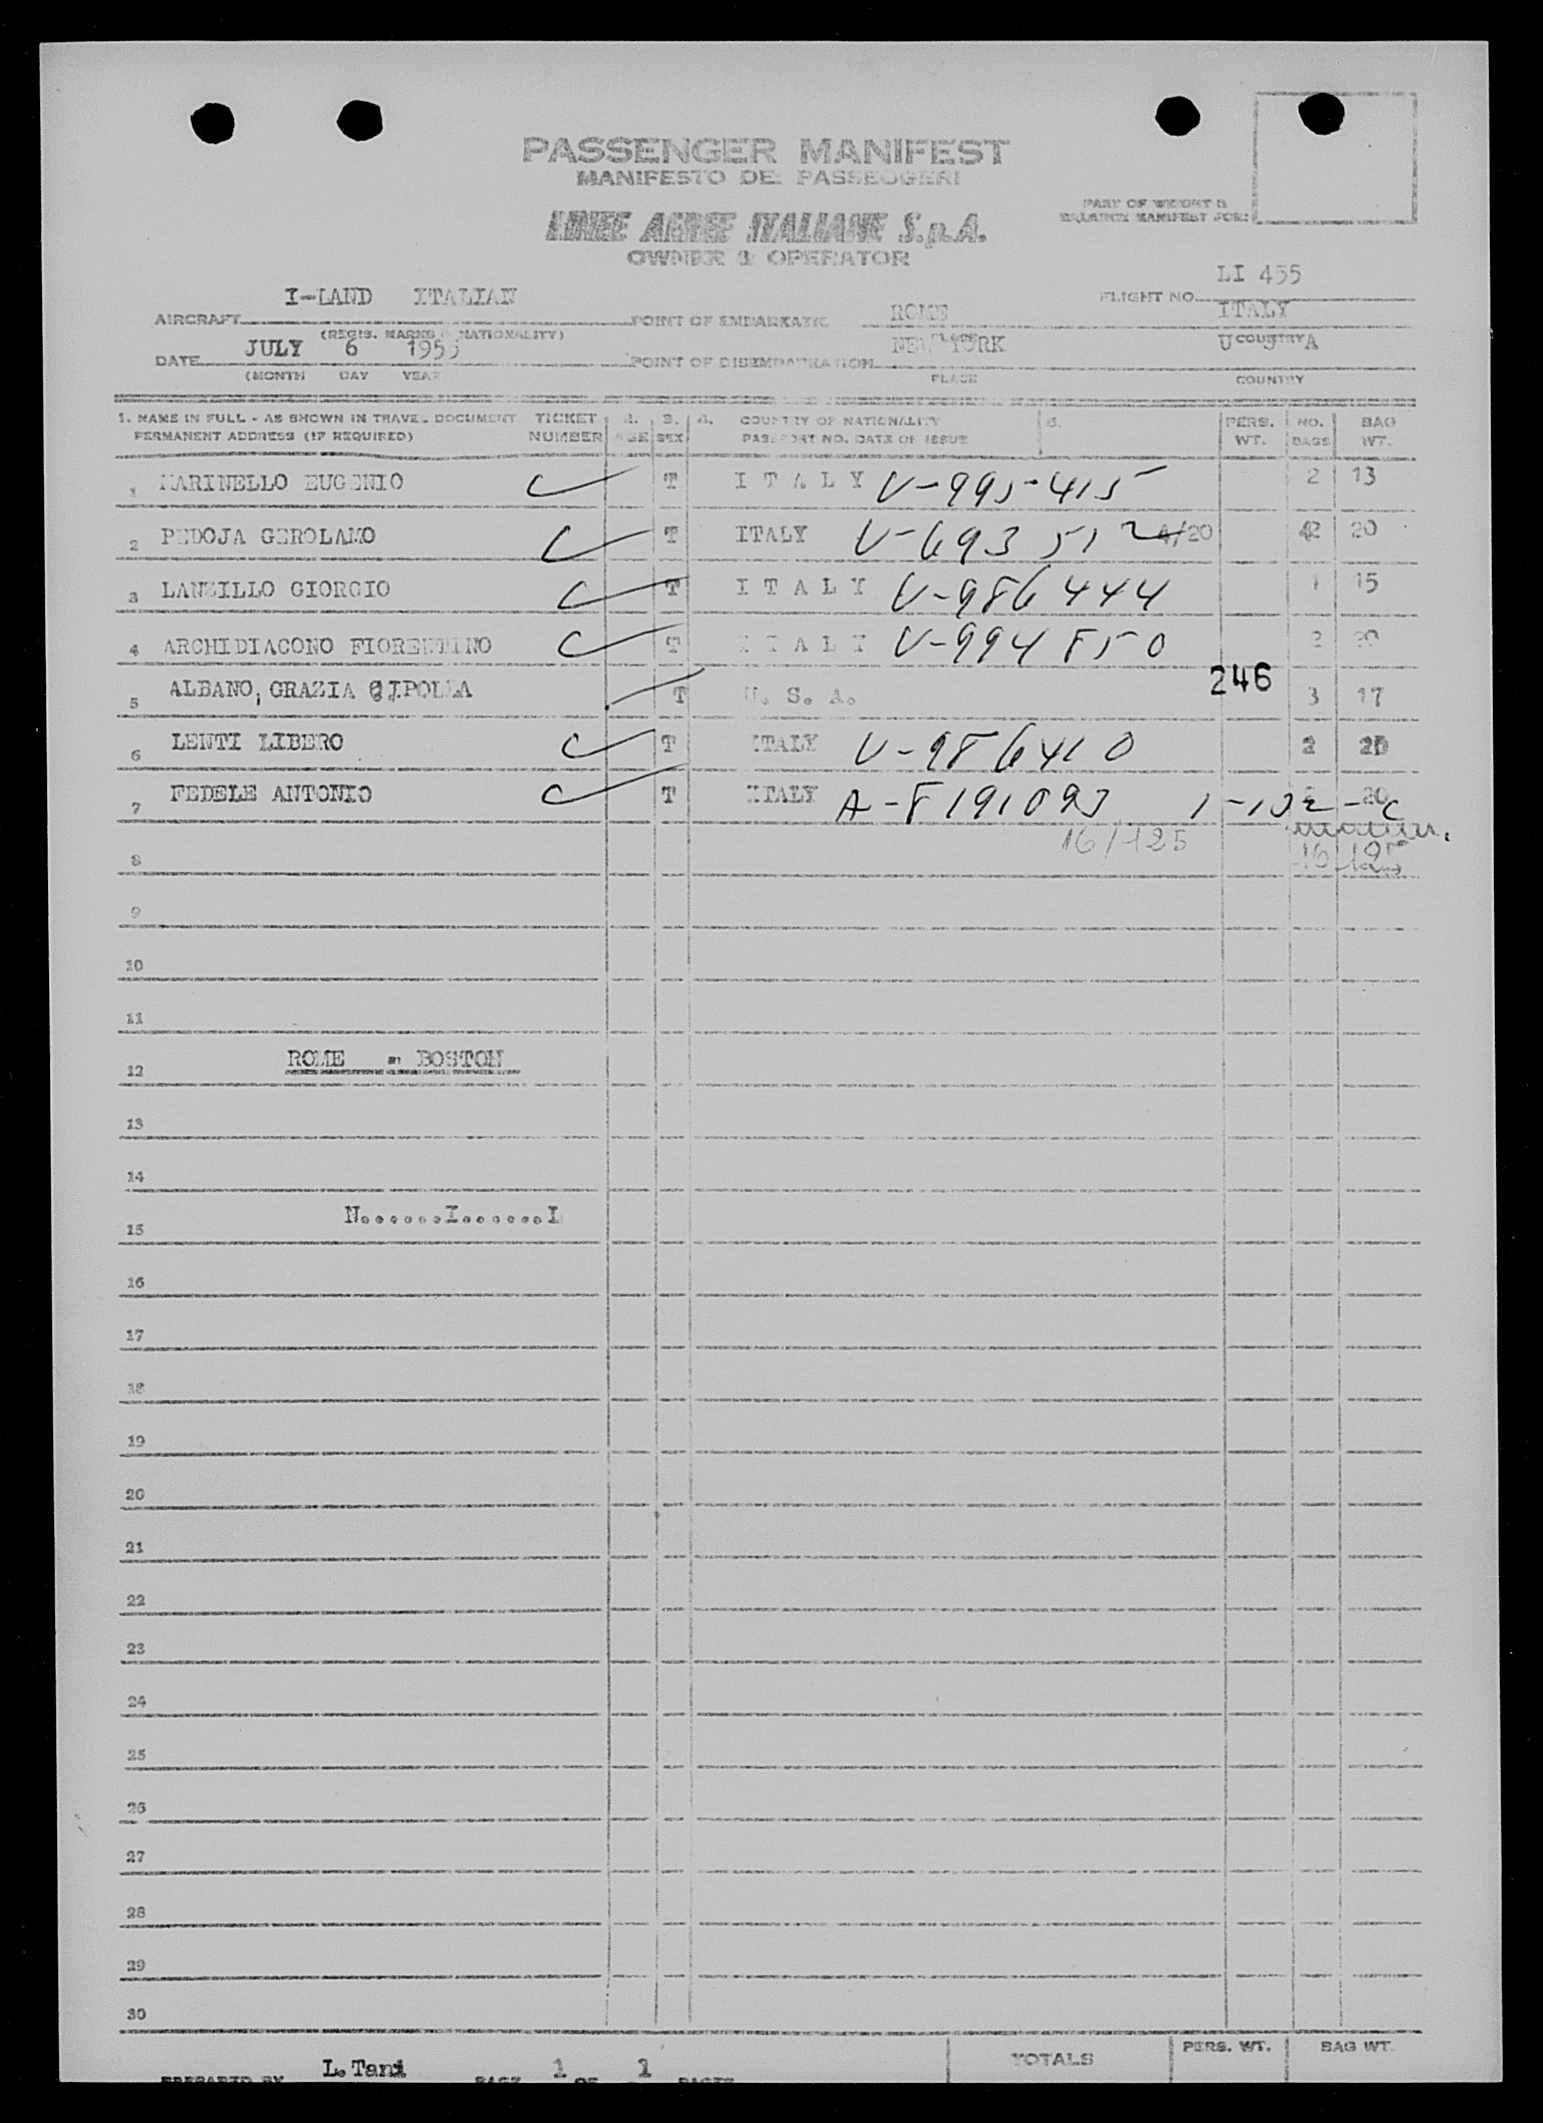 PASSENGER MANIFEST
MANIFESTO DEI PASSEGGERI
LINEE AEREE ITALIANE S.p.A.
OWNER & OPERATOR
PART OF WEIGHT &
BALANCE MANIFEST FOR:
I-LAND ITALIAN
AIRCRAFT
(REGIS. MARKS & NATIONALITY)
POINT OF EMBARKATION
ROME
PLACE
LI 455
FLIGHT NO.
ITALY
COUNTRY
JULY 6 1955
DATE
(MONTH DAY YEAR
POINT OF DISEMBARKATION
NEW YORK
PLACE
U S A
COUNTRY
1. NAME IN FULL - AS SHOWN IN TRAVEL DOCUMENT TICKET 2. 3. 4. COUNTRY OF NATIONALITY 5. PERS. NO. BAG
PERMANENT ADDRESS (IF REQUIRED) NUMBER AGE SEX PASSPORT NO. DATE OF ISSUE WT. BAGS WT.
1 MARINELLO EUGENIO T ITALY V-995-415 2 13
2 PEDOJA GEROLAMO T ITALY V-693512 4/20 20
3 LANZILLO GIORGIO T ITALY V-986444 1 15
4 ARCHIDIACONO FIORENTINO T ITALY V-994850 2 20
246
5 ALBANO, GRAZIA CIPOLLA T U. S. A. 3 17
6 LENTI LIBERO T ITALY V-986410 2
7 FEDELE ANTONIO T ITALY A-8191093 1-132-C 20
8 16/125 16 125
9
10
11
12 ROME - BOSTON
13
14
15 N.......I.......L
16
17
18
19
20
21
22
23
24
25
26
27
28
29
30
TOTALS PERS. WT. BAG WT.
PREPARED BY L. Tani PAGE 1 OF 1 PAGES